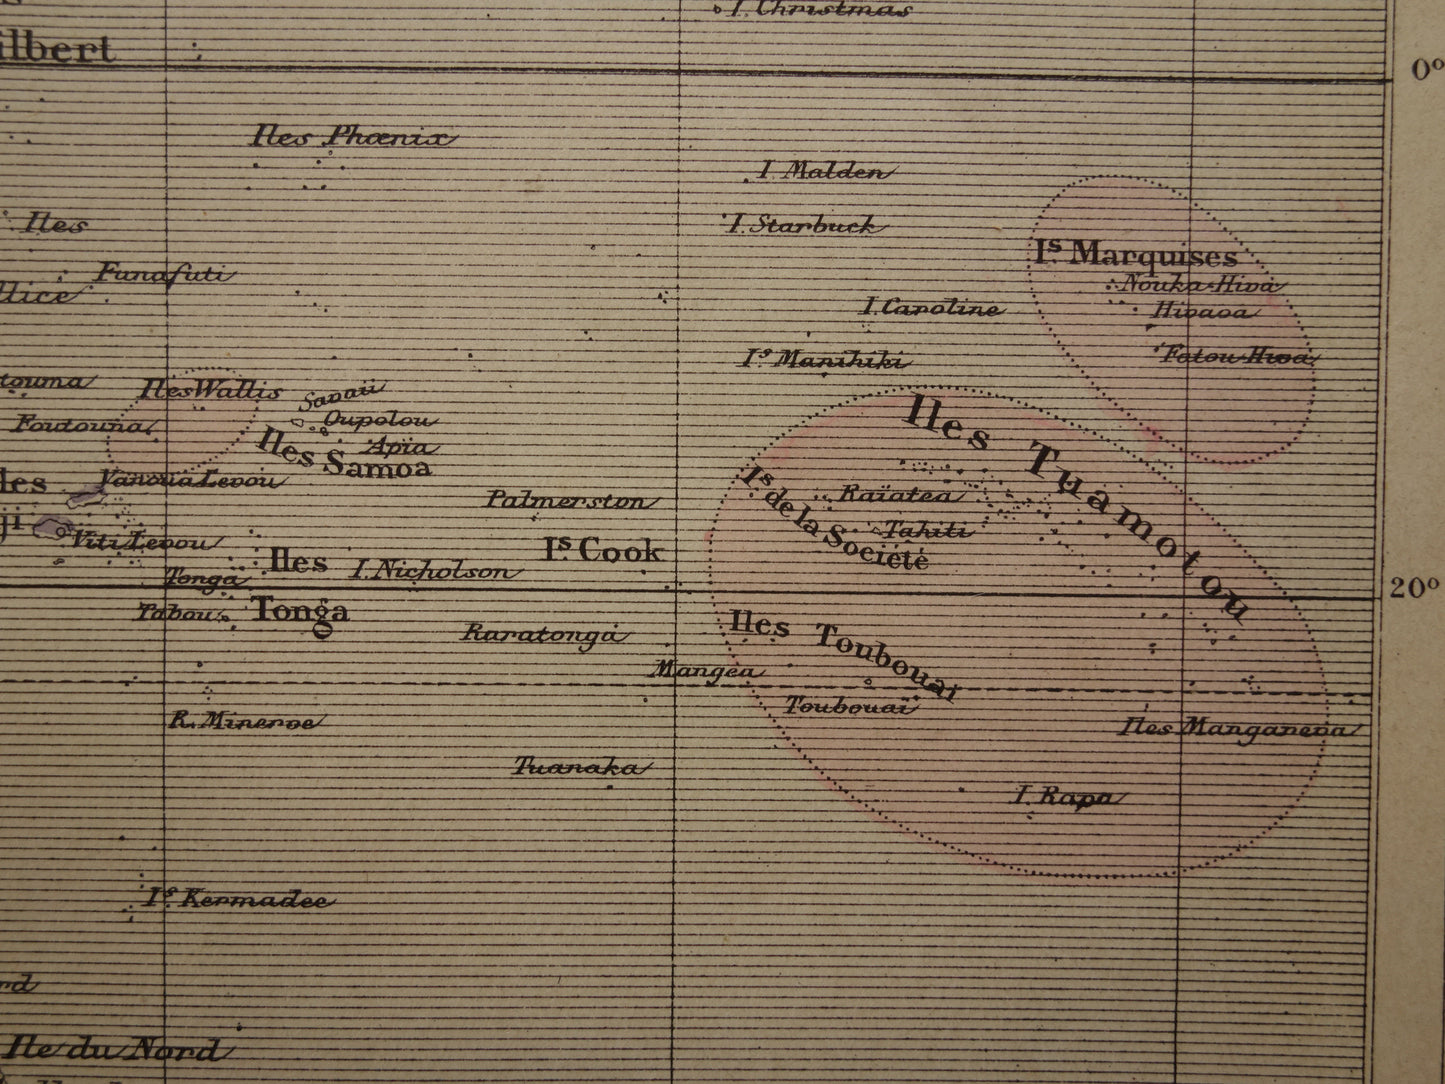 I. Christmas
ilbert
0°
Iles Phœnix
I. Malden
Iles
I. Starbuck
Is. Marquises
Funafuti
Nouka-Hiva
llice
I. Caroline
Hivaoa
Is. Manihiki
Fatou-Hiva
touma
Iles Wallis
Savaii
Iles Tuamotou
Foutouna
Oupolou
Apia
Iles Samoa
les
Vanoua Levou
Is. de la Société
Raïatea
Palmerston
ji
Viti Levou
Tahiti
Is. Cook
Iles
Tonga
I. Nicholson
Tonga
Tabou
20°
Raratonga
Iles Toubouaï
Mangea
Toubouaï
R. Minerve
Iles Manganeva
Tuanaka
I. Rapa
Is. Kermadec
rd
Ile du Nord